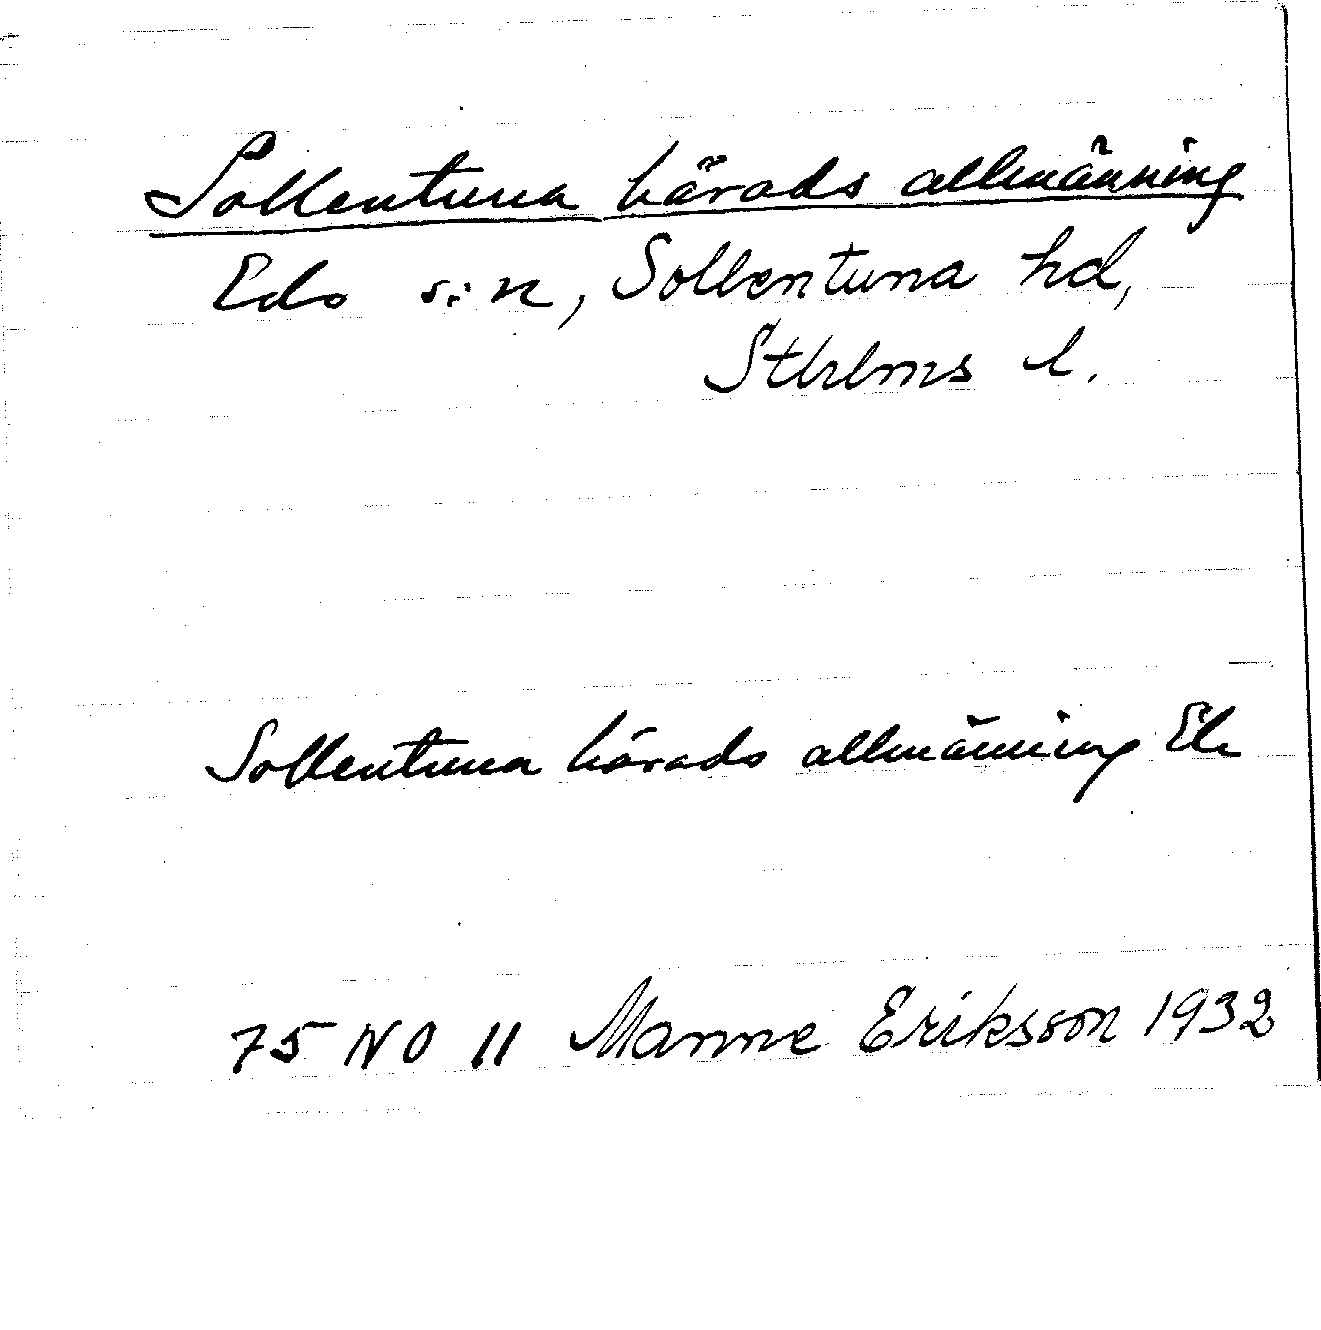 Sollentuna härads allmänning
Eds s:n, Sollentuna hd,
Sthlms l.
Sollentuna härads allmänning Ek
75 NO 11 Manne Eriksson 1932